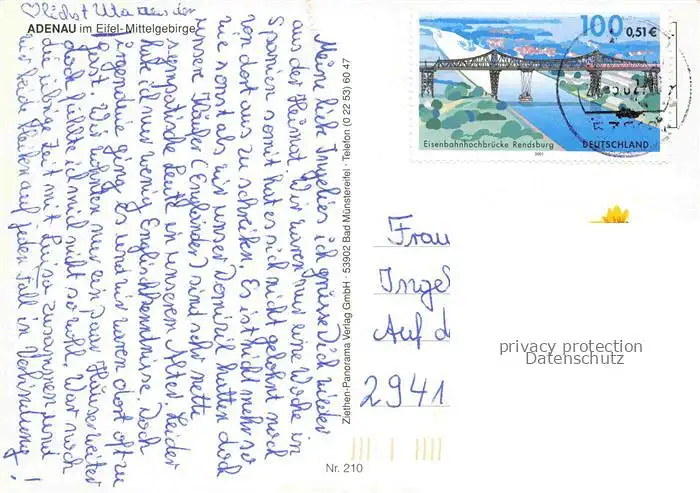 ♡lichst
ADENAU im Eifel-Mittelgebirge
Meine liebe Ingelies ich grüsse Dich wieder
aus der Heimat. Wir waren nur eine Woche in
Spanien somit hat es sich nicht gelohnt noch
von dort aus zu schreiben. Es ist nicht mehr so
wie sonst als wir unser Domizil hatten doch
unsere Käufer (Engländer) sind sehr nette
sympatische Leute in unserem Alter leider
habe ich nur wenig Englischkenntnisse. Doch
irgendwie ging es und wir waren dort oft zu
Gast. Wir wohnen nur ein paar Häuser weiter
doch fühlte ich mich nicht so wohl. War noch
die übrige Zeit mit Luisa zusammen und
wir beide bleiben auf jeden Fall in Verbindung!
Ziethen-Panorama Verlag GmbH · 53902 Bad Münstereifel · Telefon (0 22 53) 60 47
Nr. 210
100 0,51€
Eisenbahnhochbrücke Rendsburg
2001
DEUTSCHLAND
Frau
Ingel
Auf d
2941
privacy protection
Datenschutz